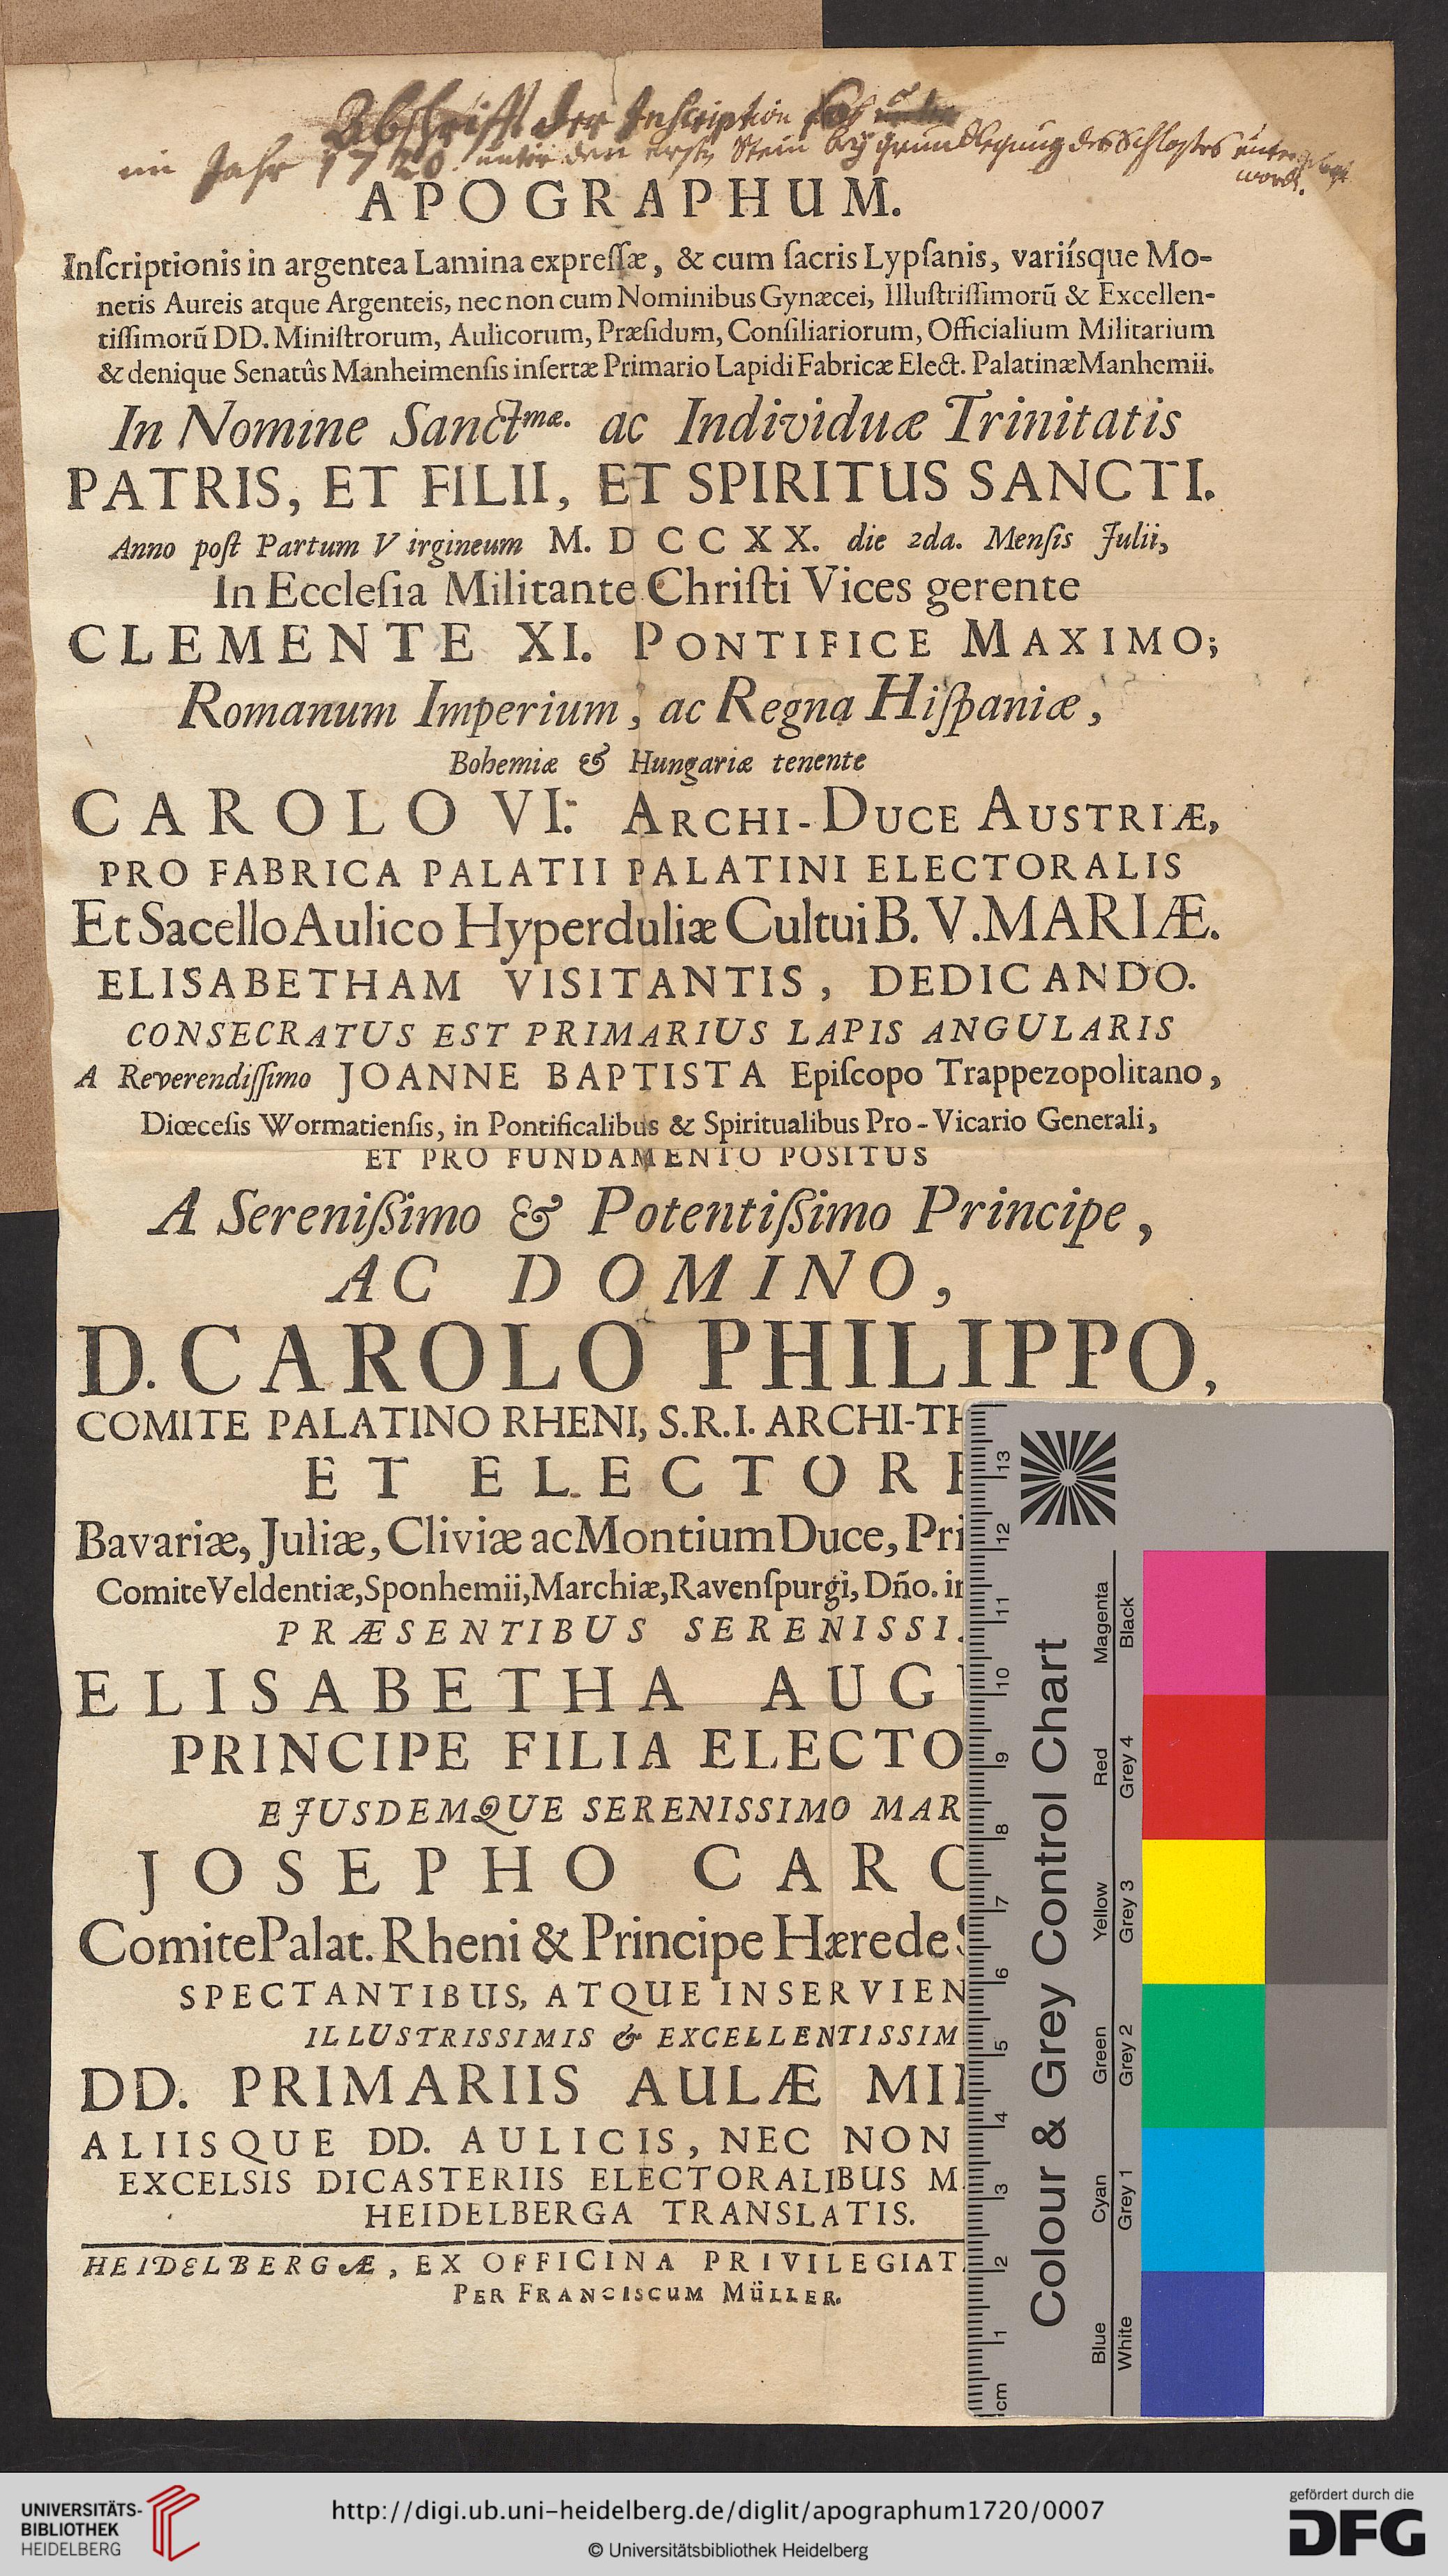 Abschrifft der Inscription so
im Jahr 1720 unter den ersten Stein bey grundlegung des Schlosses unter
word.
APOGRAPHUM.
Inſcriptionis in argentea Lamina expreſſæ, & cum ſacris Lypſanis, variíſque Mo-
netis Aureis atque Argenteis, nec non cum Nominibus Gynæcei, Illuſtriſſimorũ & Excellen-
tiſſimorũ DD. Miniſtrorum, Aulicorum, Præſidum, Conſiliariorum, Officialium Militarium
& denique Senatûs Manheimenſis inſertæ Primario Lapidi Fabricæ Elect. Palatinæ Manhemii.
In Nomine Sanctmæ. ac Individuæ Trinitatis
PATRIS, ET FILII, ET SPIRITUS SANCTI.
Anno poſt Partum V irgineum M. D C C X X. die 2da. Menſis Julii,
In Eccleſia Militante Chriſti Vices gerente
CLEMENTE XI. PONTIFICE MAXIMO;
Romanum Imperium, ac Regna Hiſpaniæ,
Bohemiæ & Hungariæ tenente
CAROLO VI: ARCHI-DUCE AUSTRIÆ,
PRO FABRICA PALATII PALATINI ELECTORALIS
Et Sacello Aulico Hyperduliæ Cultui B. V. MARIÆ.
ELISABETHAM VISITANTIS, DEDICANDO.
CONSECRATUS EST PRIMARIUS LAPIS ANGULARIS
A Reverendiſſimo JOANNE BAPTISTA Epiſcopo Trappezopolitano,
Diœceſis Wormatienſis, in Pontificalibus & Spiritualibus Pro-Vicario Generali,
ET PRO FUNDAMENTO POSITUS
A Sereniſſimo & Potentiſſimo Principe,
AC DOMINO,
D. CAROLO PHILIPPO,
COMITE PALATINO RHENI, S.R.I. ARCHI-TH
ET ELECTORE
Bavariæ, Juliæ, Cliviæ ac Montium Duce, Pri
Comite Veldentiæ, Sponhemii, Marchiæ, Ravenſpurgi, Dño. in
PRÆSENTIBUS SERENISSI
ELISABETHA AUG
PRINCIPE FILIA ELECTO
EJUSDEMQUE SERENISSIMO MAR
JOSEPHO CARO
Comite Palat. Rheni & Principe Hærede S
SPECTANTIBUS, ATQUE INSERVIEN
ILLUSTRISSIMIS & EXCELLENTISSIM
DD. PRIMARIIS AULÆ MIN
ALIISQUE DD. AULICIS, NEC NON
EXCELSIS DICASTERIIS ELECTORALIBUS M
HEIDELBERGA TRANSLATIS.
HEIDELBERGÆ, EX OFFICINA PRIVILEGIAT
PER FRANCISCUM MÜLLER.
Colour & Grey Control Chart
Magenta Black
Red Grey 4
Yellow Grey 3
Green Grey 2
Cyan Grey 1
Blue White
13
12
11
10
9
8
7
6
5
4
3
2
1
cm
UNIVERSITÄTS-
BIBLIOTHEK
HEIDELBERG
http://digi.ub.uni-heidelberg.de/diglit/apographum1720/0007
© Universitätsbibliothek Heidelberg
gefördert durch die
DFG